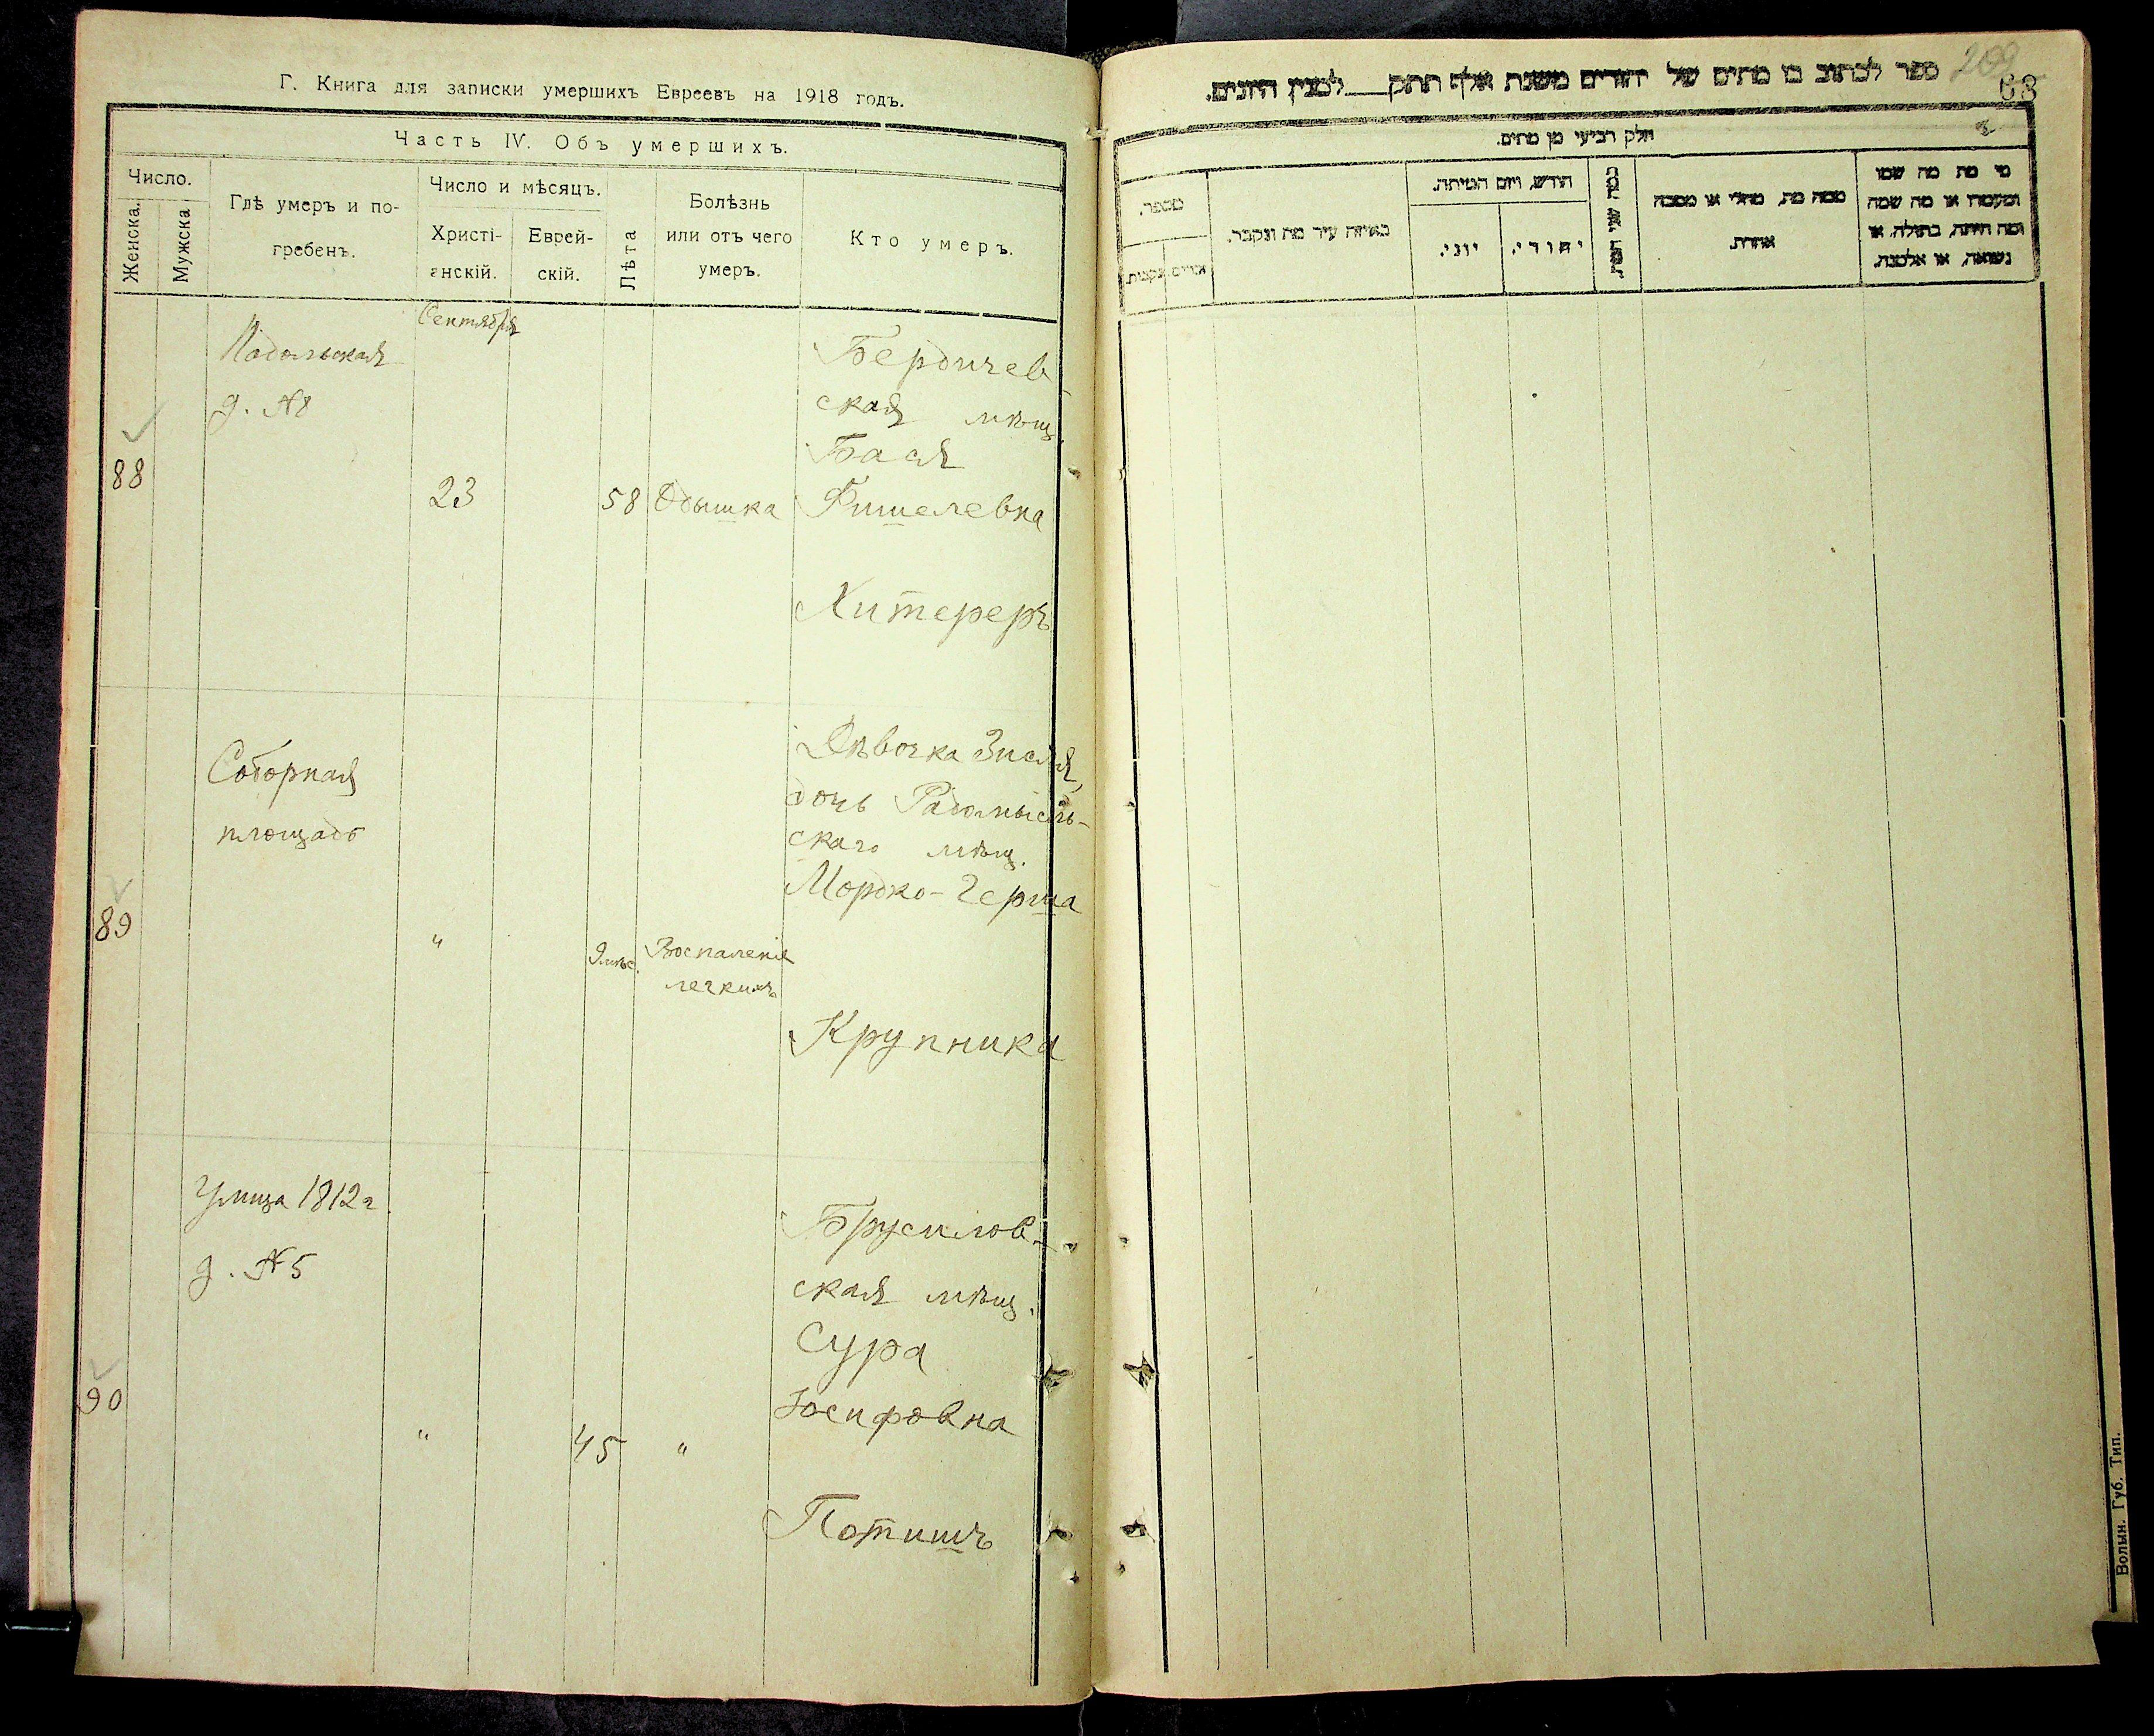 Г. Книга для записки умершихъ Евреевъ на 1918 годъ.
Часть IV. Объ умершихъ.
Число.
Женска.
Мужска
Гдѣ умеръ и по-
гребенъ.
Число и мѣсяцъ.
Христі-
анскій.
Еврей-
скій.
Лѣта
Болѣзнь
или отъ чего
умеръ.
Кто умеръ.
Сентября
88
Подольская
д. №8
23
58
Одышка
Бердичев-
ская мѣщ.
Бася
Фишелевна
Хитереръ
89
Соборная
площадь
"
9 мѣс.
Воспаленіе
легкихъ
Дѣвочка Зисля,
дочь Радомысль-
скаго мѣщ.
Мордко-Герша
Крупника
90
Улица 1812 г
д. №5
"
45
"
Брусилов-
ская мѣщ.
Сура
Іосифовна
Потишъ
ספר לכתוב בו מתים של יהודים משנת אלף תתק למנין היונים.
203
68
חלק רביעי מן מתים.
מי מת מה שמו
ומעמדו או מה שמה
ומה היתה, בתולה, או
נשואה, או אלמנה.
ממה מת, מחלי או מסבה
אחרת.
כמה שני המת.
חודש, ויום המיתה.
יהודי.
יוני.
באיזה עיר מת ונקבר.
מספר.
זכרים.
נקבות.
Волын. Губ. Тип.